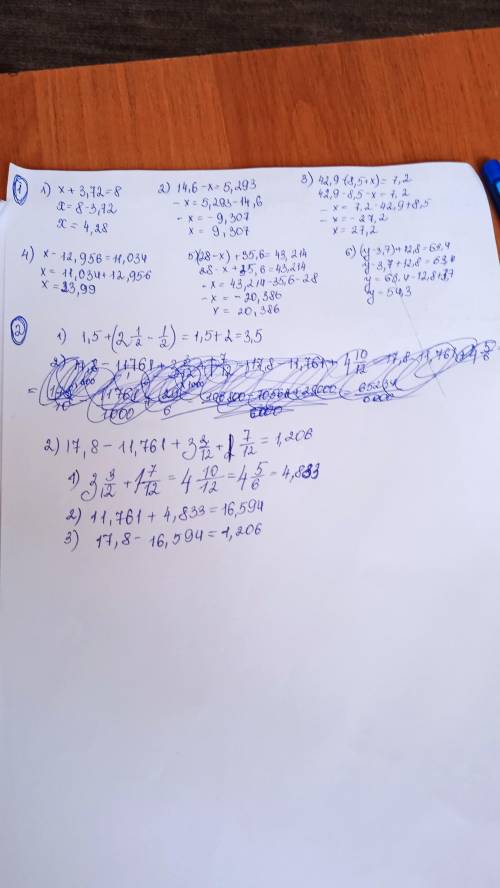 1
1) x + 3,72 = 8
x = 8 - 3,72
x = 4,28
2) 14,6 - x = 5,293
- x = 5,293 - 14,6
- x = - 9,307
x = 9,307
3) 42,9 - (8,5 + x) = 7,2
42,9 - 8,5 - x = 7,2
- x = 7,2 - 42,9 + 8,5
- x = - 27,2
x = 27,2
4) x - 12,956 = 11,034
x = 11,034 + 12,956
x = 23,99
5) (28 - x) + 35,6 = 43,214
28 - x + 35,6 = 43,214
- x = 43,214 - 35,6 - 28
- x = - 20,386
x = 20,386
6) (y - 3,7) + 12,8 = 63,4
y - 3,7 + 12,8 = 63,4
y = 63,4 - 12,8 + 3,7
y = 54,3
2
1) 1,5 + (2 1/2 - 1/2) = 1,5 + 2 = 3,5
2) 17,8 - 11,761 + 3 3/12 + 1 7/12 = 1,206
1) 3 3/12 + 1 7/12 = 4 10/12 = 4 5/6 = 4,833
2) 11,761 + 4,833 = 16,594
3) 17,8 - 16,594 = 1,206